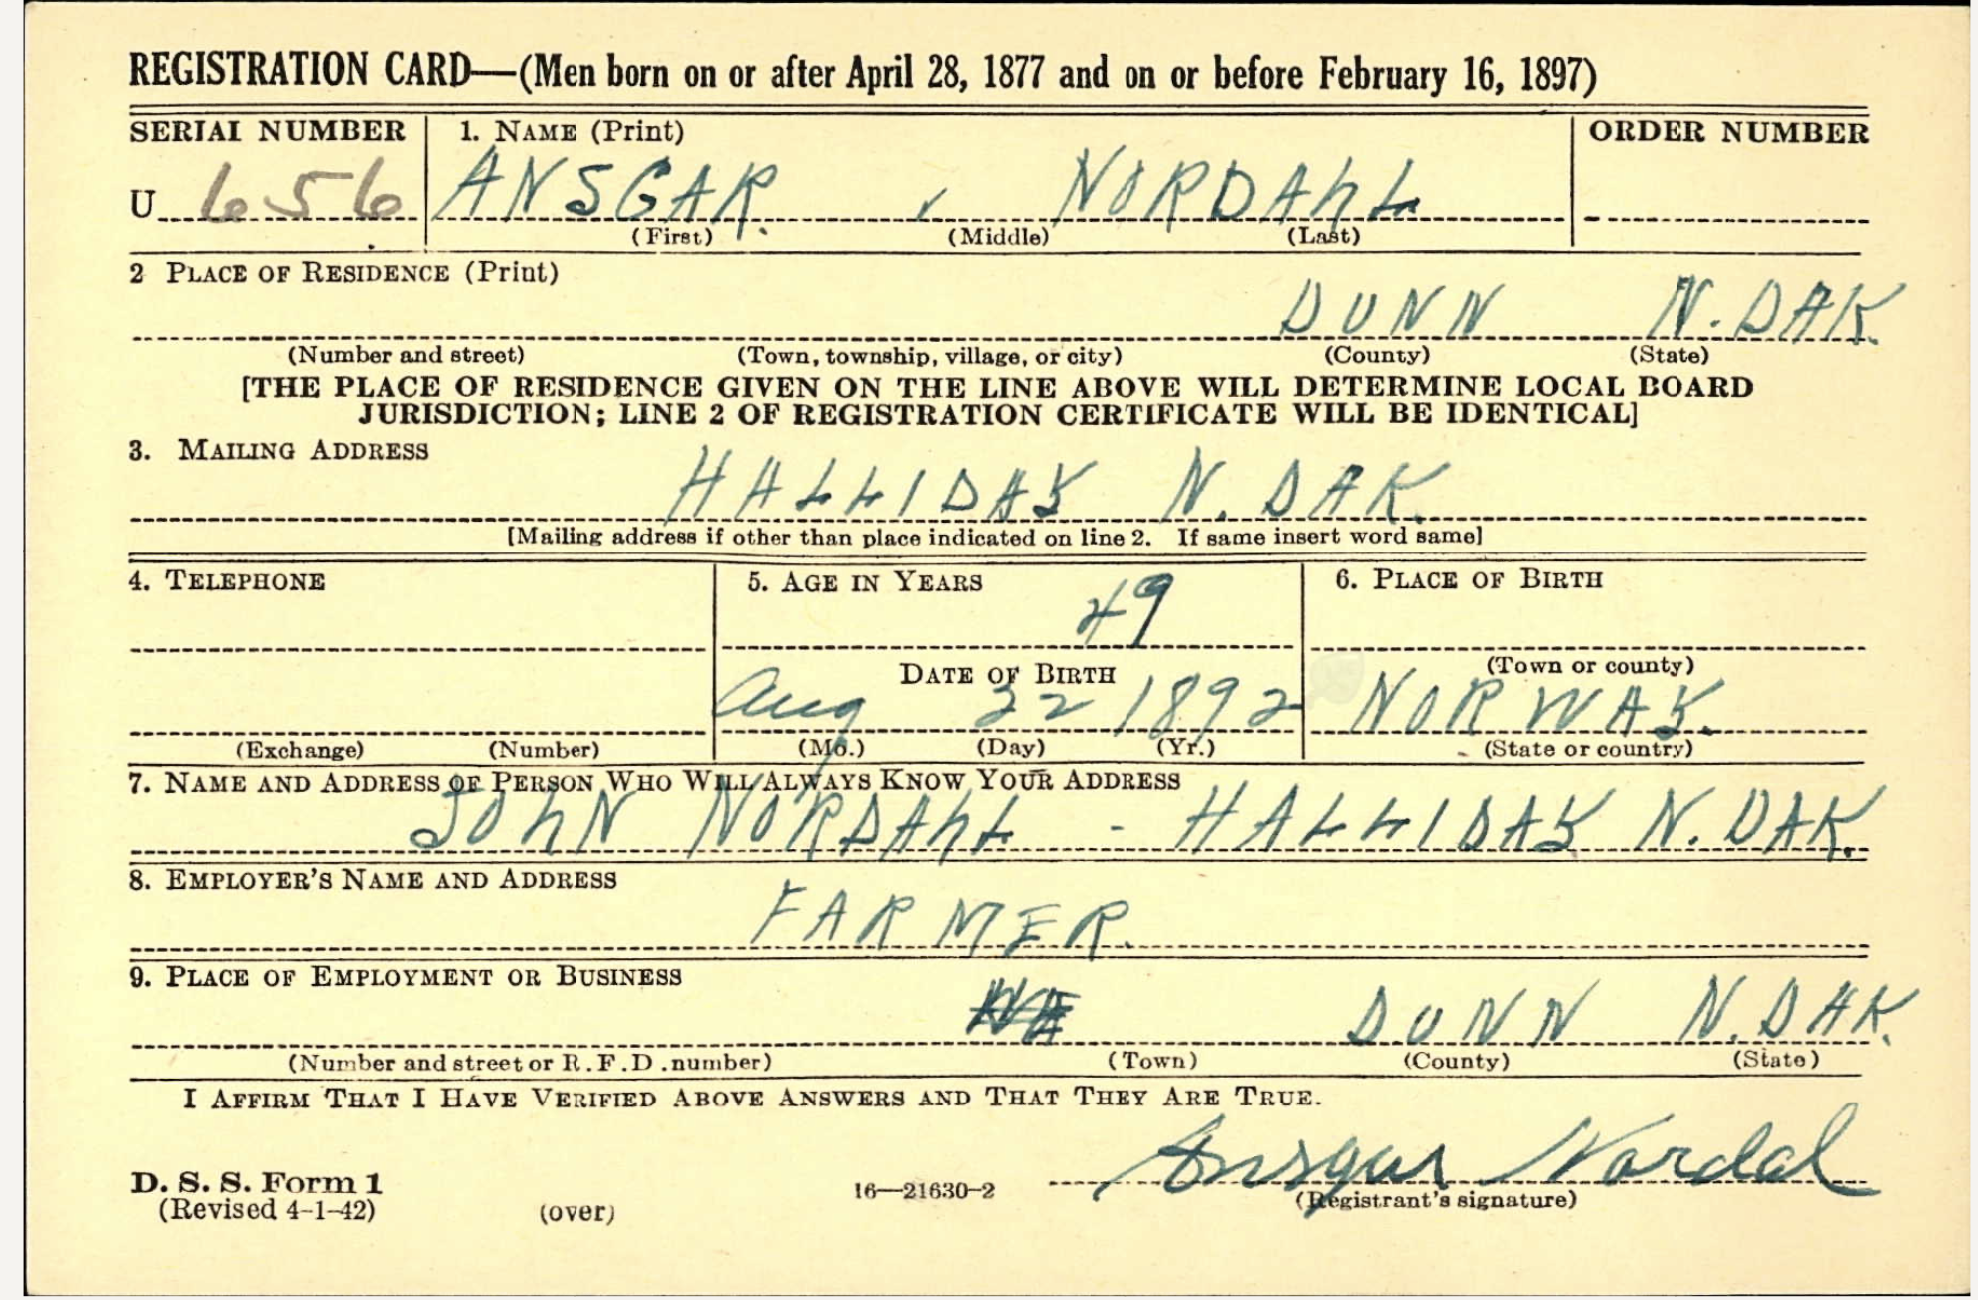 REGISTRATION CARD—(Men born on or after April 28, 1877 and on or before February 16, 1897)
SERIAL NUMBER 1. NAME (Print) ORDER NUMBER
U 656 ANSGAR. NORDAHL
(First) (Middle) (Last)
2 PLACE OF RESIDENCE (Print)
DUNN N. DAK.
(Number and street) (Town, township, village, or city) (County) (State)
[THE PLACE OF RESIDENCE GIVEN ON THE LINE ABOVE WILL DETERMINE LOCAL BOARD
JURISDICTION; LINE 2 OF REGISTRATION CERTIFICATE WILL BE IDENTICAL]
3. MAILING ADDRESS
HALLIDAY N. DAK.
[Mailing address if other than place indicated on line 2. If same insert word same]
4. TELEPHONE 5. AGE IN YEARS 6. PLACE OF BIRTH
49
DATE OF BIRTH (Town or county)
Aug 22 1892 NORWAY.
(Exchange) (Number) (Mo.) (Day) (Yr.) (State or country)
7. NAME AND ADDRESS OF PERSON WHO WILL ALWAYS KNOW YOUR ADDRESS
JOHN NORDAHL - HALLIDAY N. DAK.
8. EMPLOYER'S NAME AND ADDRESS
FARMER.
9. PLACE OF EMPLOYMENT OR BUSINESS
DUNN N. DAK.
(Number and street or R. F. D. number) (Town) (County) (State)
I AFFIRM THAT I HAVE VERIFIED ABOVE ANSWERS AND THAT THEY ARE TRUE.
Ansgar Nordal
D. S. S. Form 1 16—21630-2 (Registrant's signature)
(Revised 4-1-42) (over)